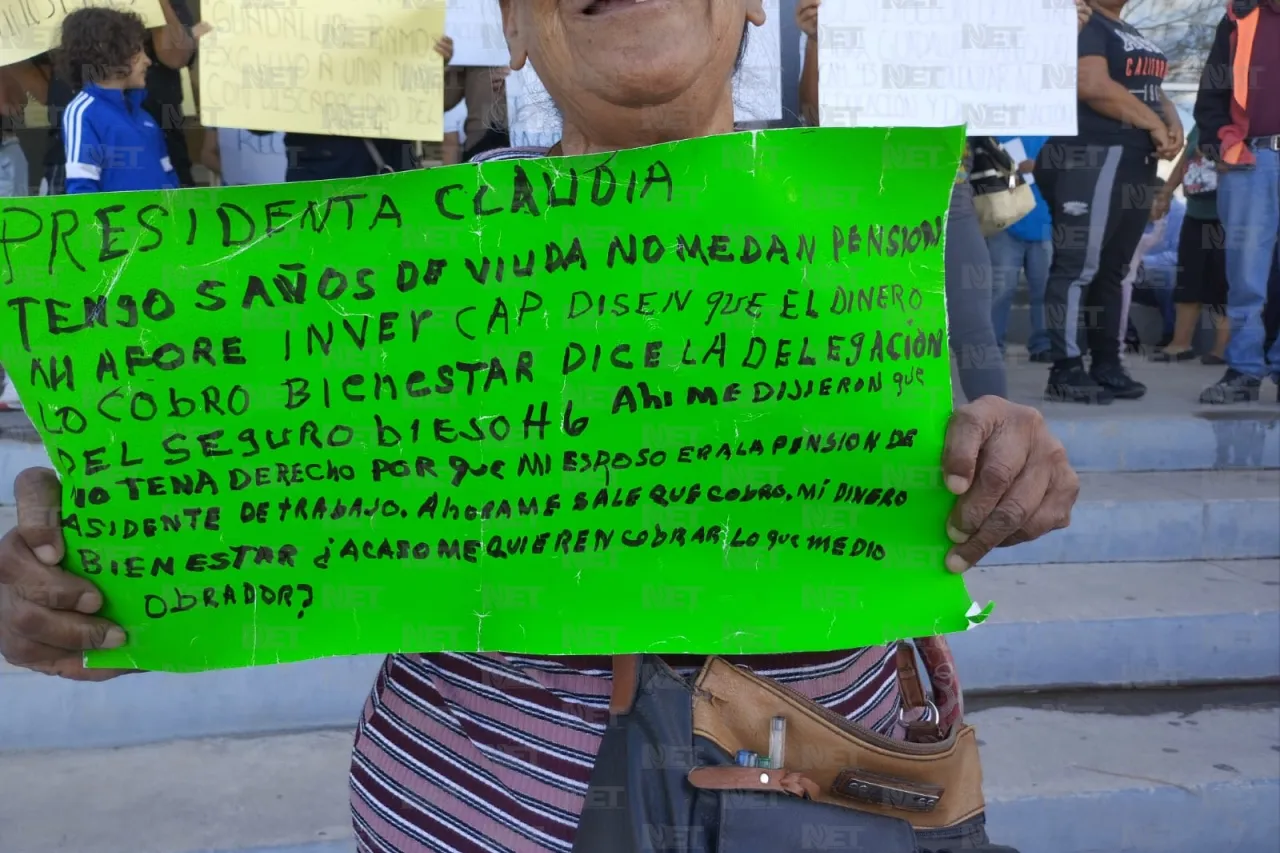 GUADALU
EXCLUYO A UNA
CON DISCAPACIDAD DEL
CALIFOR
PRESIDENTA CLAUDIA
TENGO 5 AÑOS DE VIUDA NO ME DAN PENSION
NI AFORE INVERCAP DISEN QUE EL DINERO
LO COBRO BIENESTAR DICE LA DELEGACIÓN
DEL SEGURO BIESO#6 AHI ME DIJERON QUE
NO TENA DERECHO POR QUE MI ESPOSO ERA LA PENSION DE
ASIDENTE DE TRABAJO. AHORA ME SALE QUE COBRO. MÍ DINERO
BIENESTAR ¿ACASO ME QUIEREN COBRAR LO QUE ME DIO
OBRADOR?
NET